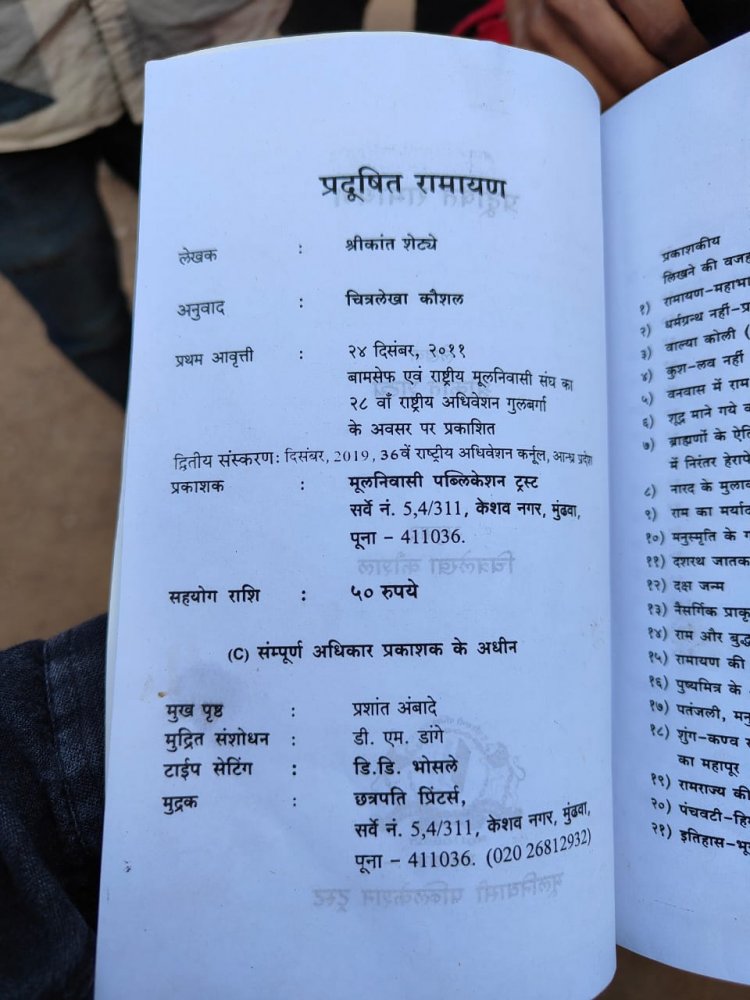 प्रदूषित रामायण
लेखक : श्रीकांत शेट्ये
अनुवाद : चित्रलेखा कौशल
प्रथम आवृत्ती : २४ दिसंबर, २०११
बामसेफ एवं राष्ट्रीय मूलनिवासी संघ का
२८ वाँ राष्ट्रीय अधिवेशन गुलबर्गा
के अवसर पर प्रकाशित
द्वितीय संस्करण: दिसंबर, 2019, 36वें राष्ट्रीय अधिवेशन कर्नूल, आन्ध्र प्रदेश
प्रकाशक : मूलनिवासी पब्लिकेशन ट्रस्ट
सर्वे नं. 5,4/311, केशव नगर, मुंढवा,
पूना - 411036.
सहयोग राशि : ५० रुपये
(C) संम्पूर्ण अधिकार प्रकाशक के अधीन
मुख पृष्ठ : प्रशांत अंबादे
मुद्रित संशोधन : डी. एम. डांगे
टाईप सेटिंग : डि.डि. भोसले
मुद्रक : छत्रपति प्रिंटर्स,
सर्वे नं. 5,4/311, केशव नगर, मुंढवा,
पूना - 411036. (020 26812932)
प्रकाशकीय
लिखने की वजह
१) रामायण-महाभा
२) धर्मग्रन्थ नहीं-प्र
३) वाल्या कोली (
४) कुश-लव नहीं
५) वनवास में राम
६) शूद्र माने गये व
७) ब्राह्मणों के ऐति
में निरंतर हेराफे
८) नारद के मुलाव
९) राम का मर्याद
१०) मनुस्मृति के ग
११) दशरथ जातक
१२) दक्ष जन्म
१३) नैसर्गिक प्राकृ
१४) राम और बुद्ध
१५) रामायण की
१६) पुष्यमित्र के
१७) पतंजली, मनु
१८) शुंग-कण्व
का महापूर
१९) रामराज्य की
२०) पंचवटी-हि
२१) इतिहास-भू